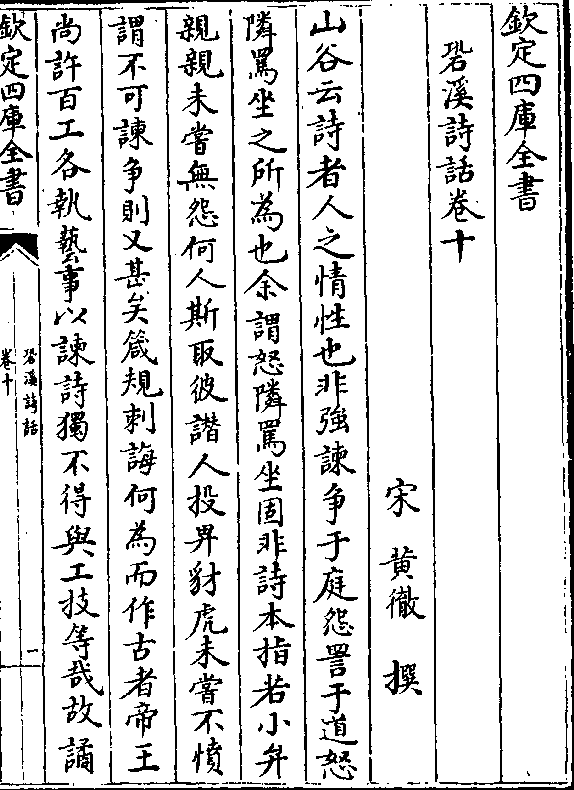 欽定四庫全書
䂬溪詩話卷十
宋 黄徹 撰
山谷云詩者人之情性也非強諫争于庭怨詈于道怒
隣罵坐之所為也余謂怒隣罵坐固非詩本指若小弁
親親未嘗無怨何人斯取彼譖人投畀豺虎未嘗不憤
謂不可諫争則又甚矣箴規刺誨何為而作古者帝王
尚許百工各執藝事以諫詩獨不得與工技等哉故譎
欽定四庫全書
䂬溪詩話
卷十
一